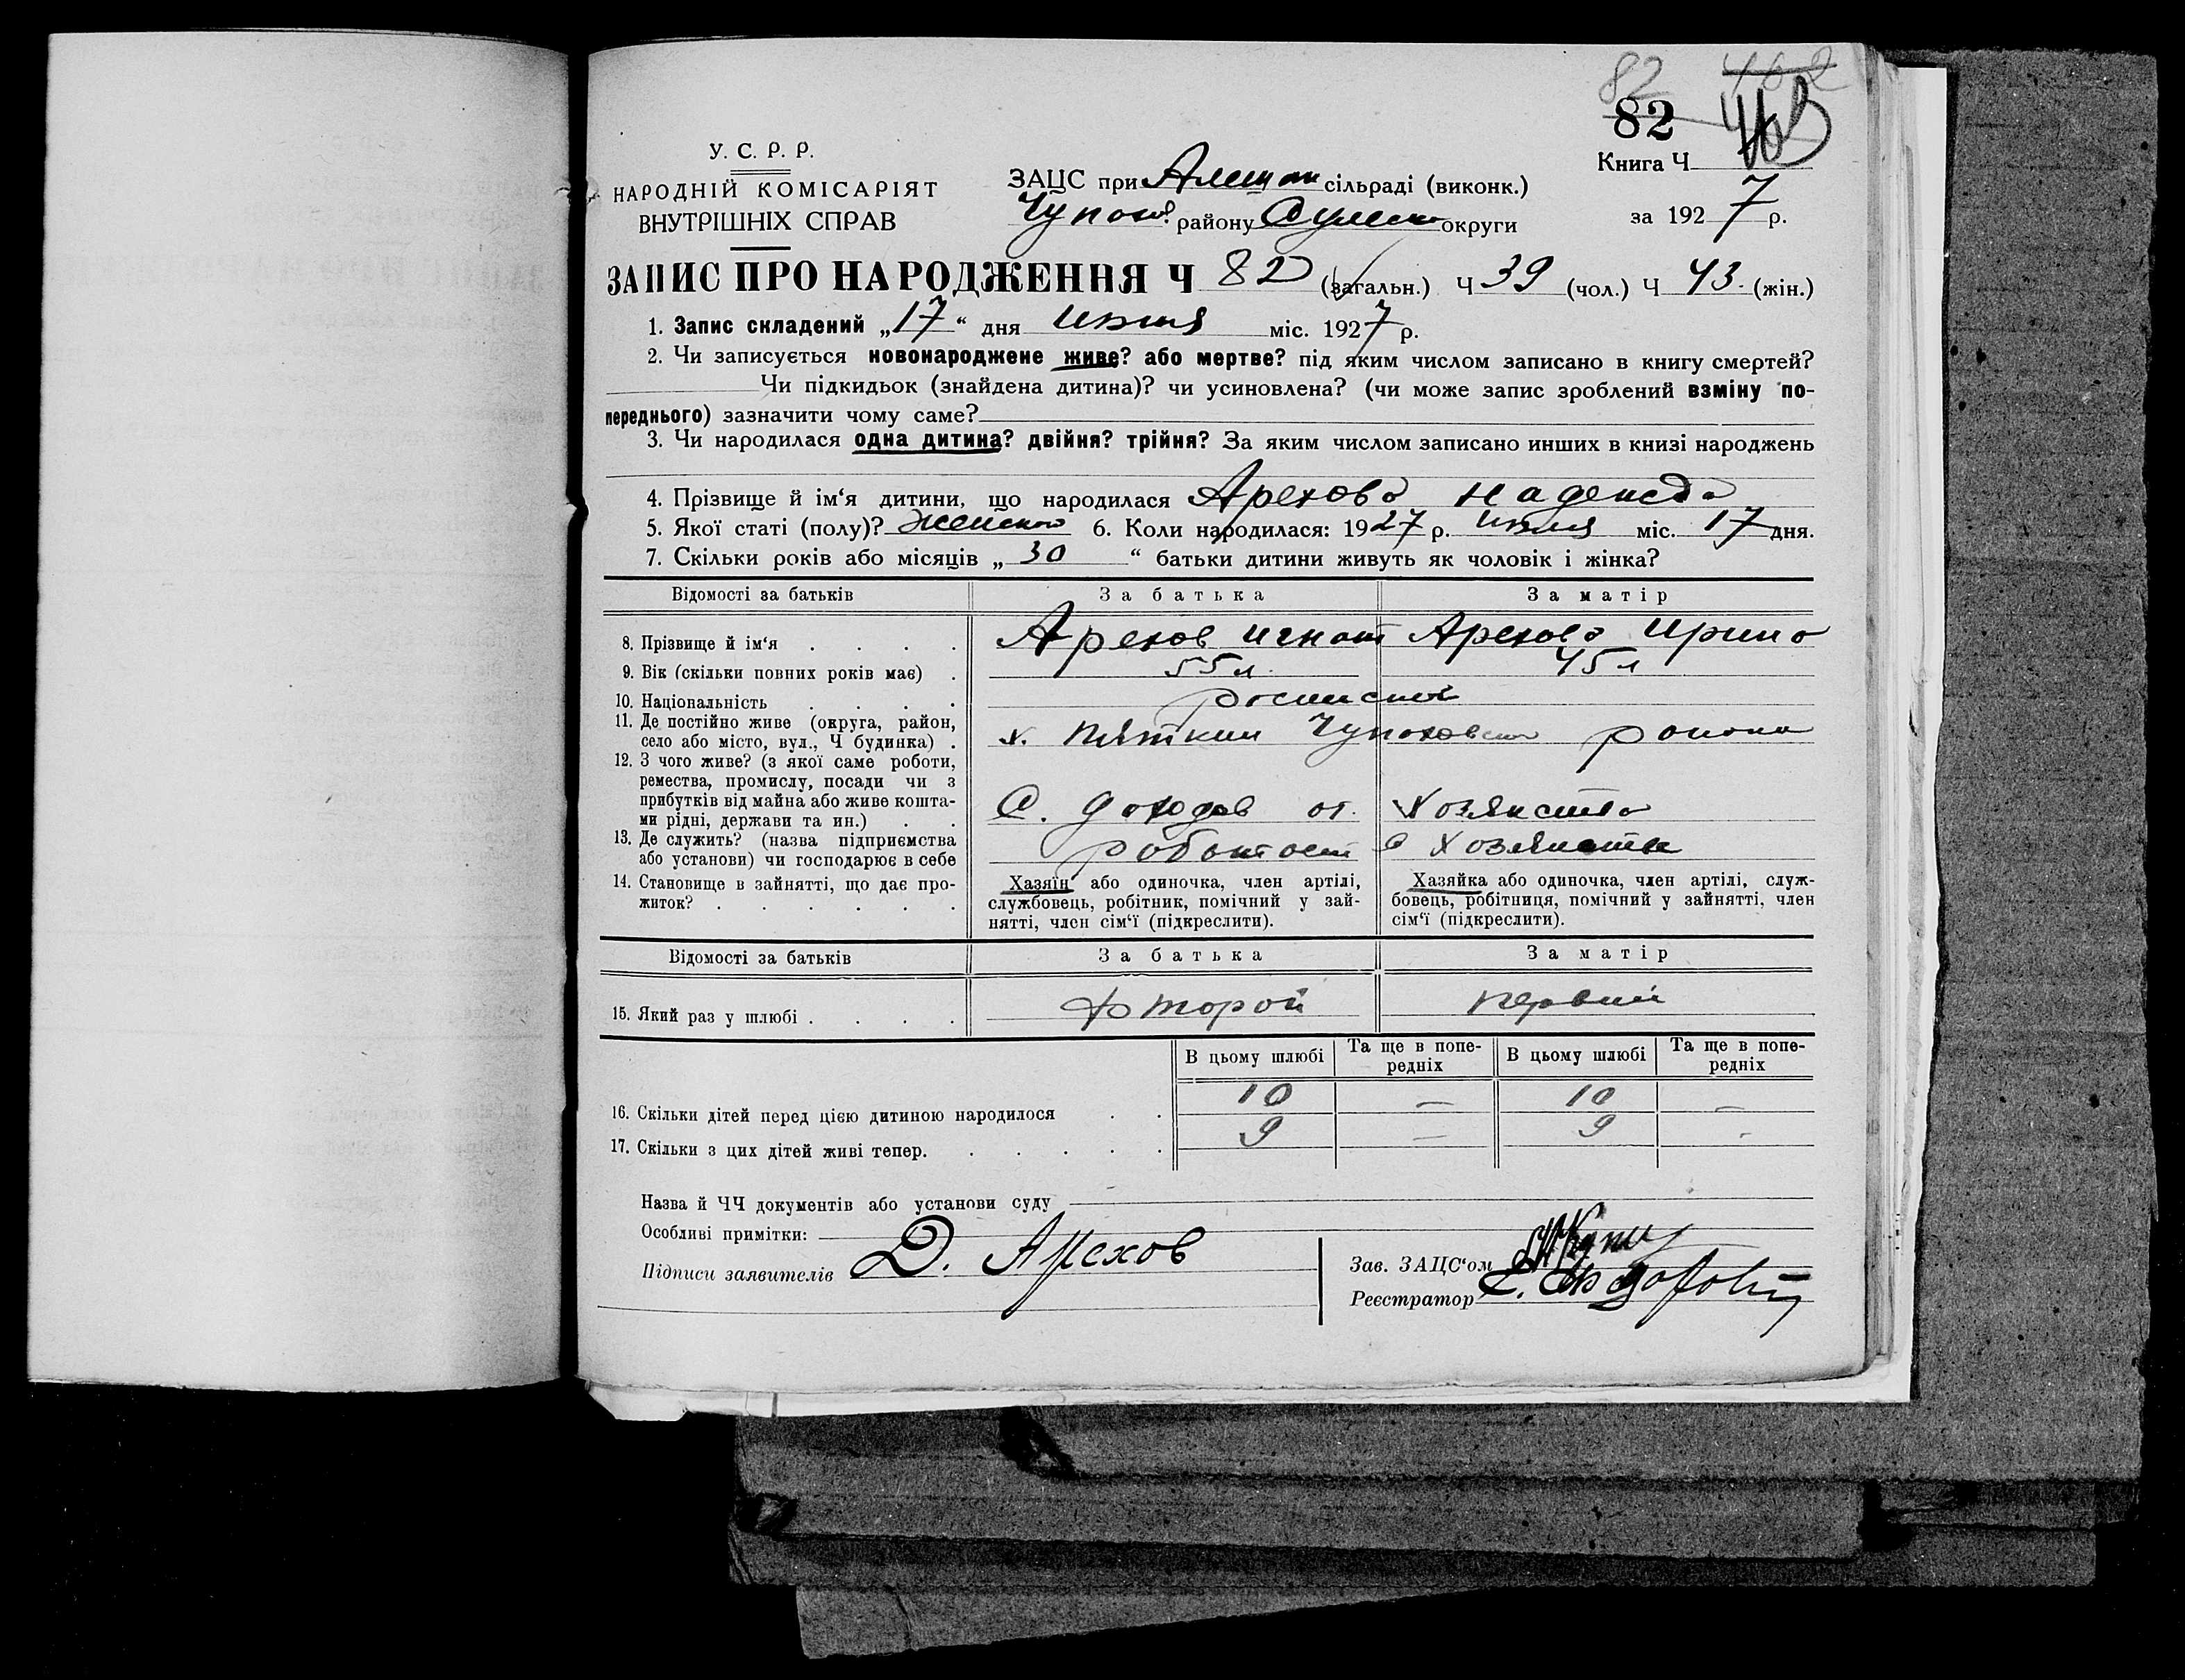 82 462
82 463
У. С. Р. Р.
НАРОДНІЙ КОМІСАРІЯТ
ВНУТРІШНІХ СПРАВ
ЗАЦС при Алешан сільраді (виконк.)
Чупахов. району Сумской округи
Книга Ч
за 1927 р.
ЗАПИС ПРО НАРОДЖЕННЯ Ч 82 (загальн.) Ч 39 (чол.) Ч 43. (жін.)
1. Запис складений „17“ дня июля міс. 1927 р.
2. Чи записується новонароджене живе? або мертве? під яким числом записано в книгу смертей?
Чи підкидьок (знайдена дитина)? чи усиновлена? (чи може запис зроблений взміну по-
переднього) зазначити чому саме?
3. Чи народилася одна дитина? двійня? трійня? За яким числом записано инших в книзі народжень
4. Прізвище й ім‘я дитини, що народилася Арехова Надежда
5. Якої статі (полу)? Женского 6. Коли народилася: 1927 р. июля міс. 17 дня.
7. Скільки років або місяців „30“ батьки дитини живуть як чоловік і жінка?
Відомості за батьків За батька За матір
8. Прізвище й ім‘я . . . . Арехов Игнат Арехова Ирина
9. Вік (скільки повних років має) . 55 л. 45 л
10. Національність . . . .
11. Де постійно живе (округа, район,
село або місто, вул., Ч будинка) . х. Пяткин Чупаховского района
12. З чого живе? (з якої саме роботи,
ремества, промислу, посади чи з
прибутків від майна або живе кошта-
ми рідні, держави та ин.) . . С. доходов от. Хозяйства
13. Де служить? (назва підприємства
або установи) чи господарює в себе работает в хозяйстве
14. Становище в зайнятті, що дає про-
житок? . . . . . .
Хазяїн або одиночка, член артілі,
службовець, робітник, помічний у зай-
нятті, член сім‘ї (підкреслити).
Хазяйка або одиночка, член артілі, служ-
бовець, робітниця, помічний у зайнятті, член
сім‘ї (підкреслити).
Відомості за батьків За батька За матір
15. Який раз у шлюбі . . . . Второй первый
В цьому шлюбі Та ще в попе-
редніх В цьому шлюбі Та ще в попе-
редніх
16. Скільки дітей перед цією дитиною народилося . . 10 — 10 —
17. Скільки з цих дітей живі тепер. . . . . . 9 — 9 -
Назва й ЧЧ документів або установи суду
Особливі примітки:
Підписи заявителів Д. Арехов
Зав. ЗАЦС‘ом
Реєстратор